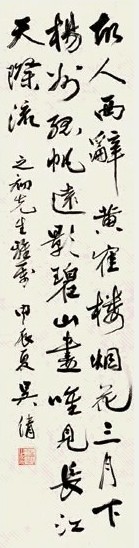 故人西辭黃鶴樓烟花三月下
楊州孤帆遠影碧山盡唯見長江
天際流 之初先生雅屬 甲辰夏 吳倩